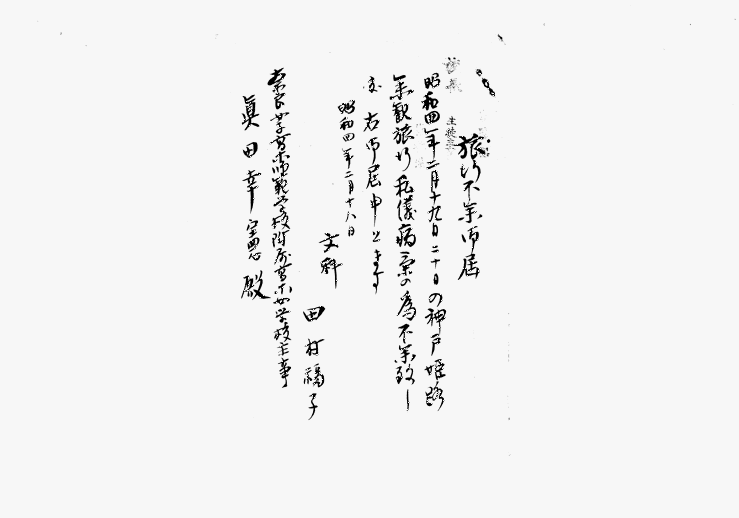 旅行不参御届
昭和四年二月十九日二十日の神戸姫路
参観旅行私儀病気の為不参致し
右御届申上ます
昭和四年二月十八日
文科
田村福子
奈良女子高等師範学校附属高等女学校主事
眞田幸憲殿